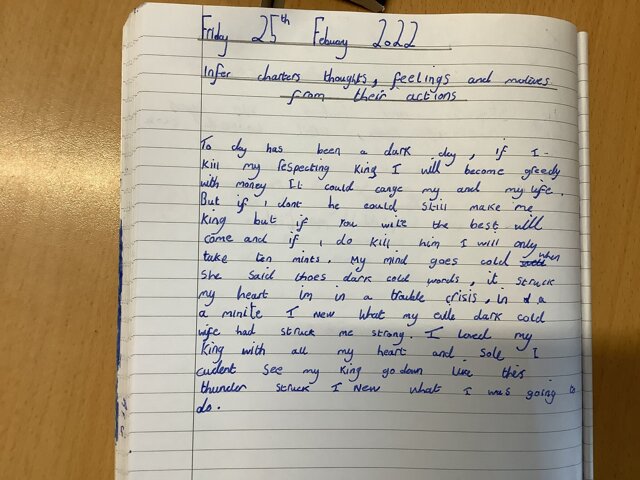 Friday 25th Febuary 2022
Infer charters thoughts, feelings and motives
from their actions
To day has been a dark day, if I
kill my respecting King I will become greedy
with money It could cange my and my life.
But if i dont he could still make me
King but if you wite the best will
come and if i do kill him I will only
take ten mints. My mind goes cold when
she said thoes dark cold words, it struck
my heart im in a trouble crisis, in a
a minite I new what my dark cold
wife had struck me strong. I loved my
King with all my heart and sole I
cudent see my King go down like this.
thunder struck I new what I was going to
do.